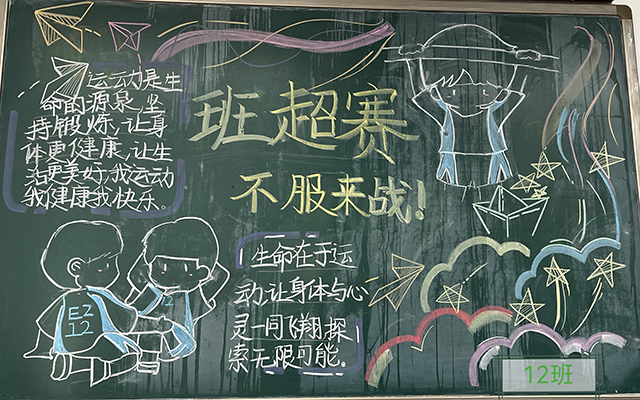 运动是生
命的源泉,坚
持锻炼,让身
体更健康,让生
活更美好,我运动
我健康我快乐。
班超赛
不服来战!
生命在于运
动,让身体与心
灵一同飞翔,探
索无限可能.
EZ
12
12班